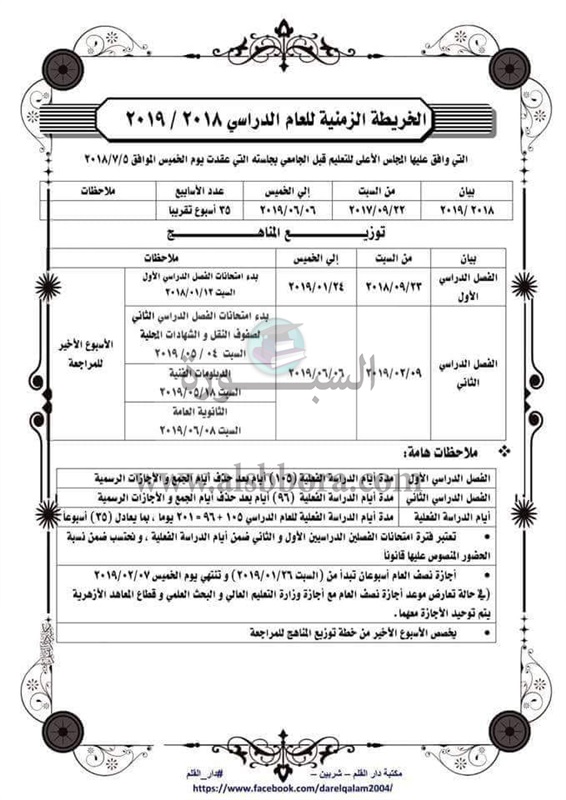 الخريطة الزمنية للعام الدراسي ٢٠١٨ / ٢٠١٩
التي وافق عليها المجلس الأعلى للتعليم قبل الجامعي بجلسته التي عقدت يوم الخميس الموافق ٢٠١٨/٧/٥
بيان من السبت إلي الخميس عدد الأسابيع ملاحظات
٢٠١٨ /٢٠١٩ ٢٠١٧/٠٩/٢٢ ٢٠١٩/٠٦/٠٦ ٣٥ أسبوع تقريبا
توزيـــع المناهـــج
بيان من السبت إلي الخميس ملاحظات
الفصل الدراسي الأول ٢٠١٨/٠٩/٢٣ ٢٠١٩/٠١/٢٤ بدء امتحانات الفصل الدراسي الأول
السبت ٢٠١٨/٠١/١٢
الفصل الدراسي الثاني ٢٠١٩/٠٢/٠٩ ٢٠١٩/٠٦/٠٦ بدء امتحانات الفصل الدراسي الثاني
لصفوف النقل و الشهادات المحلية
السبت ٠٤ /٠٥ /٢٠١٩
الدبلومات الفنية
السبت ٢٠١٩/٠٥/١٨
الثانوية العامة
السبت ٢٠١٩/٠٦/٠٨
الأسبوع الأخير
للمراجعة
السبورة
www.alsbbora.com
ملاحظات هامة:
الفصل الدراسي الأول مدة أيام الدراسة الفعلية (١٠٥) أيام بعد حذف أيام الجمع و الأجازات الرسمية
الفصل الدراسي الثاني مدة أيام الدراسة الفعلية (٩٦) أيام بعد حذف أيام الجمع و الأجازات الرسمية
أيام الدراسة الفعلية مدة أيام الدراسة الفعلية للعام الدراسي ١٠٥ + ٩٦ = ٢٠١ يوما ، بما يعادل (٣٥) أسبوعا
• تعتبر فترة امتحانات الفصلين الدراسيين الأول و الثاني ضمن أيام الدراسة الفعلية ، و تحتسب ضمن نسبة
الحضور المنصوص عليها قانوناً
• أجازة نصف العام أسبوعان تبدأ من (السبت ٢٠١٩/٠١/٢٦) و تنتهي يوم الخميس ٢٠١٩/٠٢/٠٧
(في حالة تعارض موعد أجازة نصف العام مع أجازة وزارة التعليم العالي و البحث العلمي و قطاع المعاهد الأزهرية
يتم توحيد الأجازة معهما.
• يخصص الأسبوع الأخير من خطة توزيع المناهج للمراجعة
مكتبة دار القلم – شربين – #دار_القلم
https://www.facebook.com/darelqalam2004/